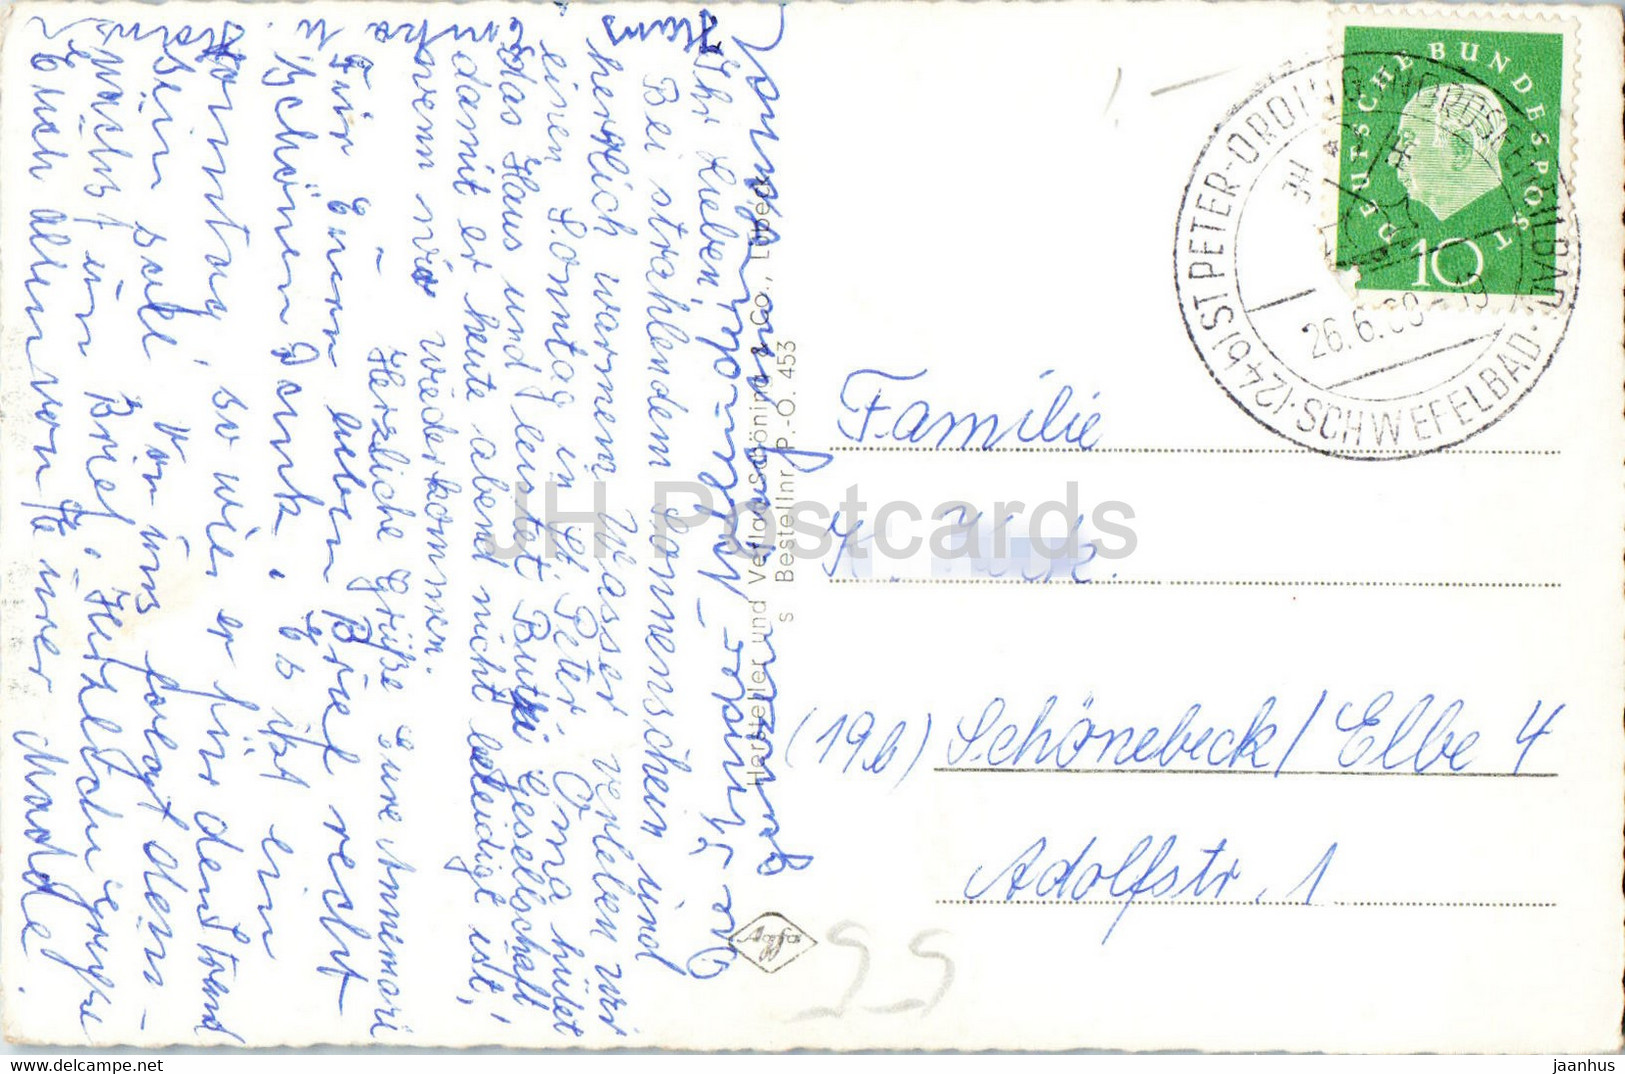 Ihr Lieben!
Bei strahlendem Sonnenschein und
herrlich warmem Wasser verleben wir
einen Sonntag in St Peter. Oma hütet
das Haus und leistet Butzi Gesellschaft,
damit er heute abend nicht beleidigt ist,
wenn wir wiederkommen.
Herzliche Grüße Eure Annemarie
Für Euren lieben Brief recht
schönen Dank. Es ist ein
Sonntag, so wie er für den Strand
sein soll. Von uns folgt dem-
nächst ein Brief. Herzliche Grüße
Euch allen von Eurer
Hans
DEUTSCHE BUNDESPOST
10
(24b) ST PETER-ORDING · NORDSEEHEILBAD · SCHWEFELBAD
26.6.60-19
Familie
K.
(19b) Schönebeck/Elbe 4
Adolfstr. 1
Hersteller und Verlag Schöning & Co., Lübeck
s Bestellnr P.-O. 453
JH Postcards
55
www.delcampe.net
jaanhus